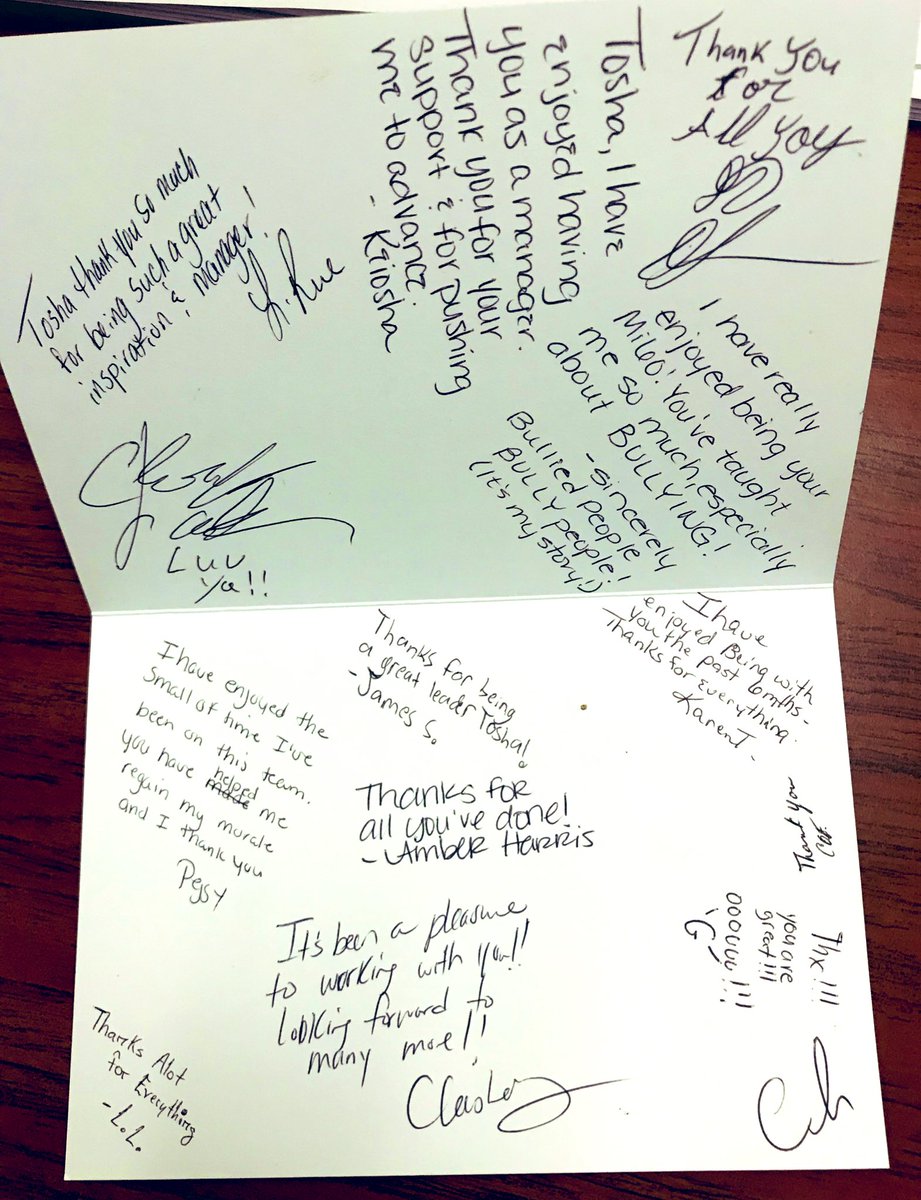 Thank you
for
All you
Tosha, I have
enjoyed having
you as a manager.
Thank you for your
support & for pushing
me to advance.
- Keiosha
Tosha thank you so much
for being such a great
inspiration & manager!
L. Rue
I have really
enjoyed being your
Miloo! You've taught
me so much, especially
about BULLYING!
- Sincerely
Bullied people
BULLY people!
(It's my story!)
Luv
Ya!!
Thanks for being
a great leader Tosha!
- James S.
I have
enjoyed Being with
you the past 6mths -
Thanks for Everything.
Karen T.
I have enjoyed the
small of time I've
been on this team.
you have helped me
regain my murale
and I thank you
Peggy
Thanks for
all you've done!
- Amber Harris
Thank you
Thx!!!
you are
great!!!
ooouuu!!!
"G"
It's been a pleasure
to working with you!!
Looking forward to
many more!!
Thanks Alot
for Everything
- L.L.